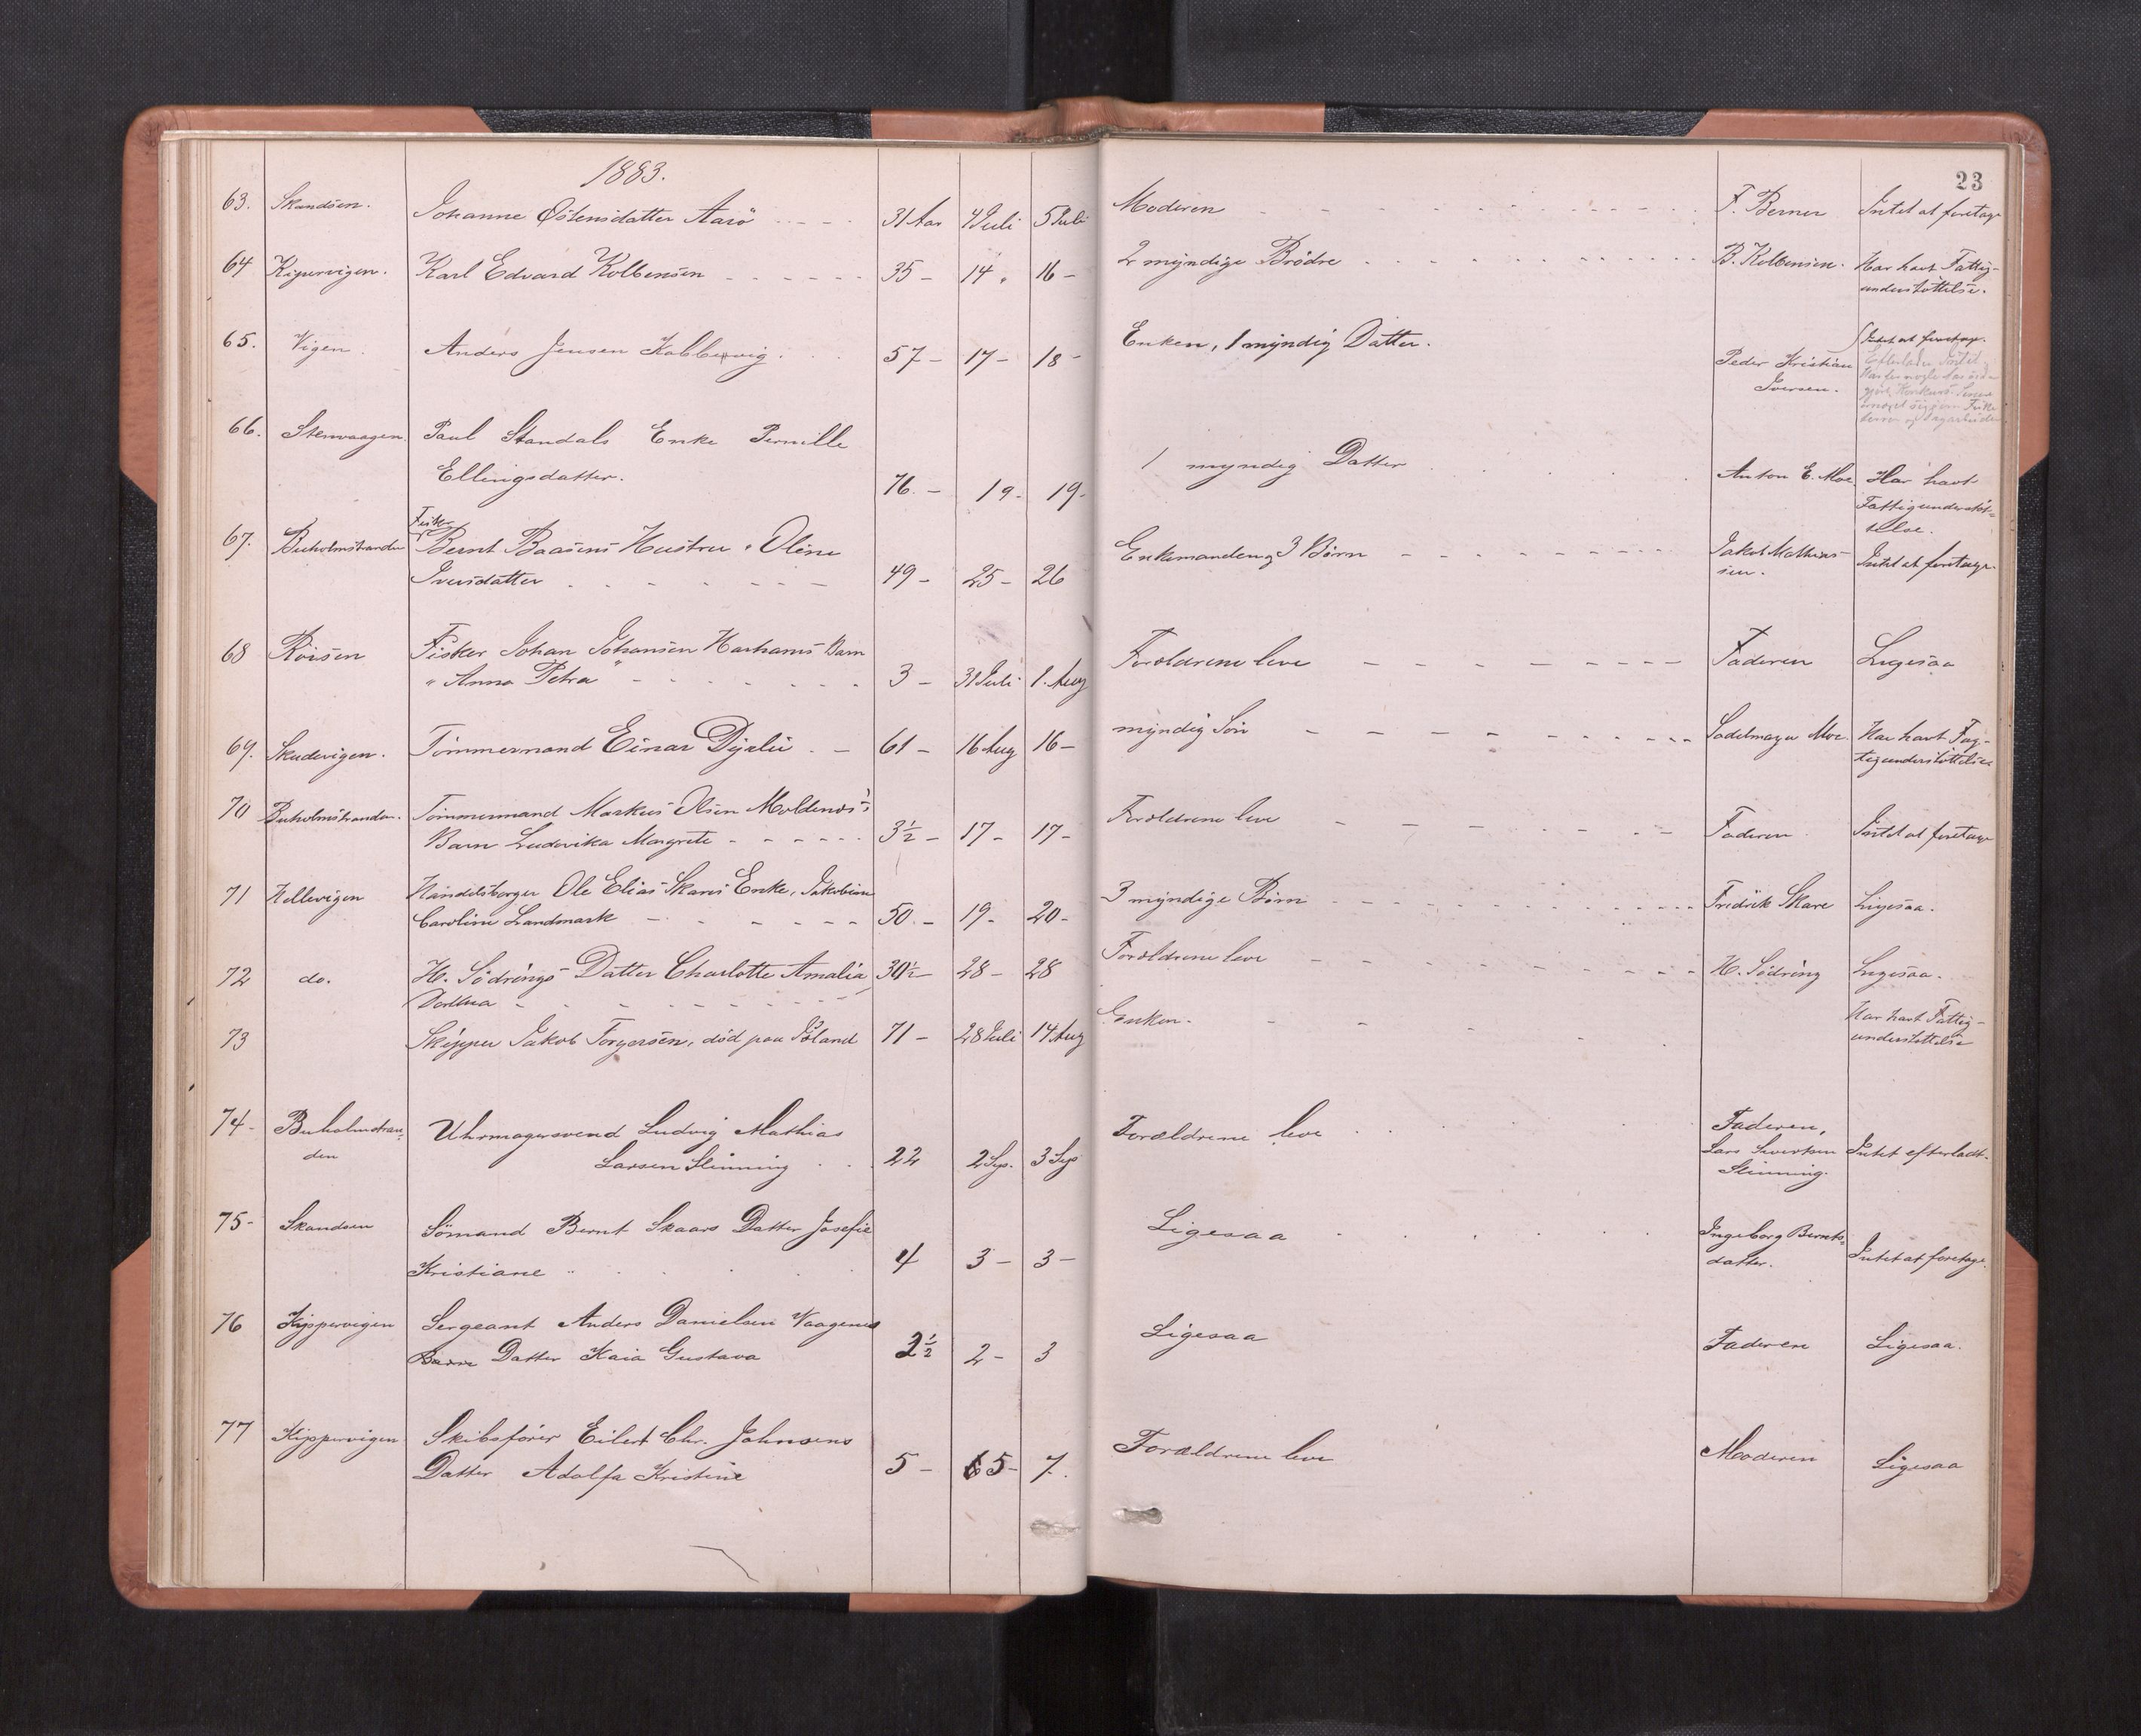 1883.
23
63. Skandsen. Johanne Østensdatter Aarö 31 Aar 4 Juli 5 Juli Moderen F. Berner Intet at foretage
64 Kipervigen. Karl Edvard Kolbensen 35 - 14 " 16 - 2 myndige Brødre B. Kolbensen. Har havt Fattig-
understøttelse.
65. Vigen. Anders Jensen Kobbervig. 57 - 17 - 18 - Enken, 1 myndig Datter. Intet at foretage.
Peder Kristian Efterlader Intet
Iversen.
66. Stenvaagen. Paul Standals Enke Pernille
Ellingsdatter. 76. - 19 - 19 - 1 myndig Datter Anton E. Moe. Har havt
Fattigunderstøt=
telse.
67. Buholmstranden Fisker
Bernt Baasens Hustru " Oline Enkemanden og 3 Børn Jakob Mathias-
Iversdatter 49 - 25 - 26 sen. Intet at foretage.
68 Röisen Fisker Johan Johansen Harhams Barn Forældrene leve Faderen Ligesaa
" Anna Petra " 3 - 31 Juli 1. Aug
69. Skudevigen. Tömmermand Einar Djalii - 61 - 16 Aug 16 - myndig Sön Sadelmager Moe. Har havt Fat-
tigunderstøttelse
70 Buholmstranden. Tömmermand Markus Olsen Moldenæs's Forældrene leve
Barn Ludevika Margrete 3½ - 17 - 17 - Faderen Intet at foretage
71 Hellevigen Handelsborger Ole Elias Skares Enke, Jakobine 3 myndige Börn Fredrik Skare Ligesaa.
Caroline Landmark 50. - 19 - 20 -
72 do. H. Södrings Datter Charlotte Amalia 30½ - 28 - 28 Forældrene leve H. Södring Ligesaa.
Dorthea
73 Skipper Jakob Torgersen, död paa Island 71 - 28 Juli 14 Aug Enken. Har havt Fattig-
understøttelse
74 - Buholmstran= Uhrmagersvend Ludvig Mathias Forældrene leve Faderen,
den Larsen Slinning 22 2 Sep. 3 Sep Lars Sivertsen Intet efterladt.
Slinning.
75 - Skandsen Sömand Bernt Skaars Datter Josefie Ligesaa Ingeborg Bernts=
Kristiane 4 3 - 3 - datter. Intet at foretage.
76 Kjppervigen Sergeant Anders Danielsen Vaagenes Ligesaa Faderen Ligesaa.
Barn Datter Kaia Gustava 2½ 2 - 3
77 Kjppervigen Skibsförer Eilert Chr. Johnsens Forældrene leve Moderen Ligesaa
Datter Adolfa Kristine 5 - 5 - 7.